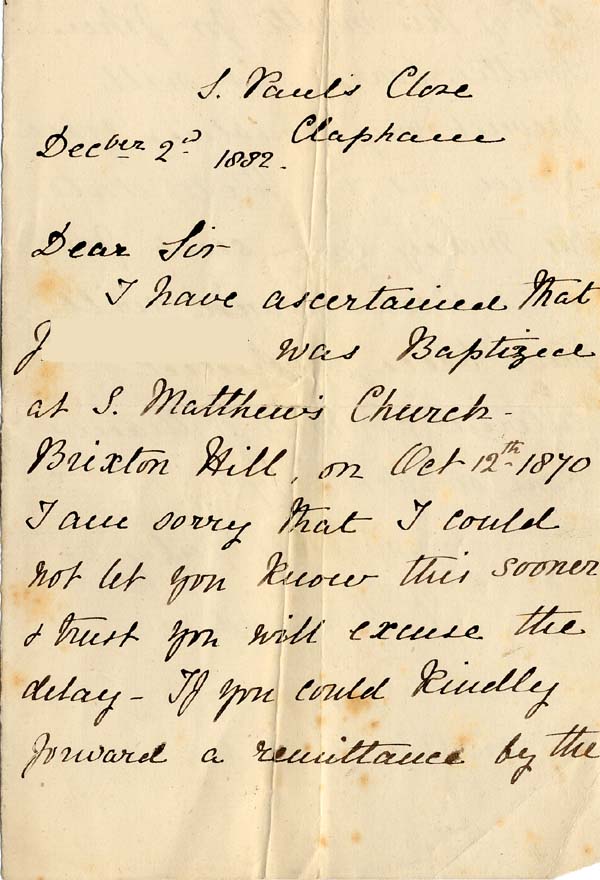 S. Paul's Close
Clapham
Decber 2d 1882.
Dear Sir
I have ascertained that
J was Baptized
at S. Matthew's Church -
Brixton Hill, on Oct 12th 1870
I am sorry that I could
not let you know this sooner
& trust you will excuse the
delay - If you could kindly
forward a remittance by the